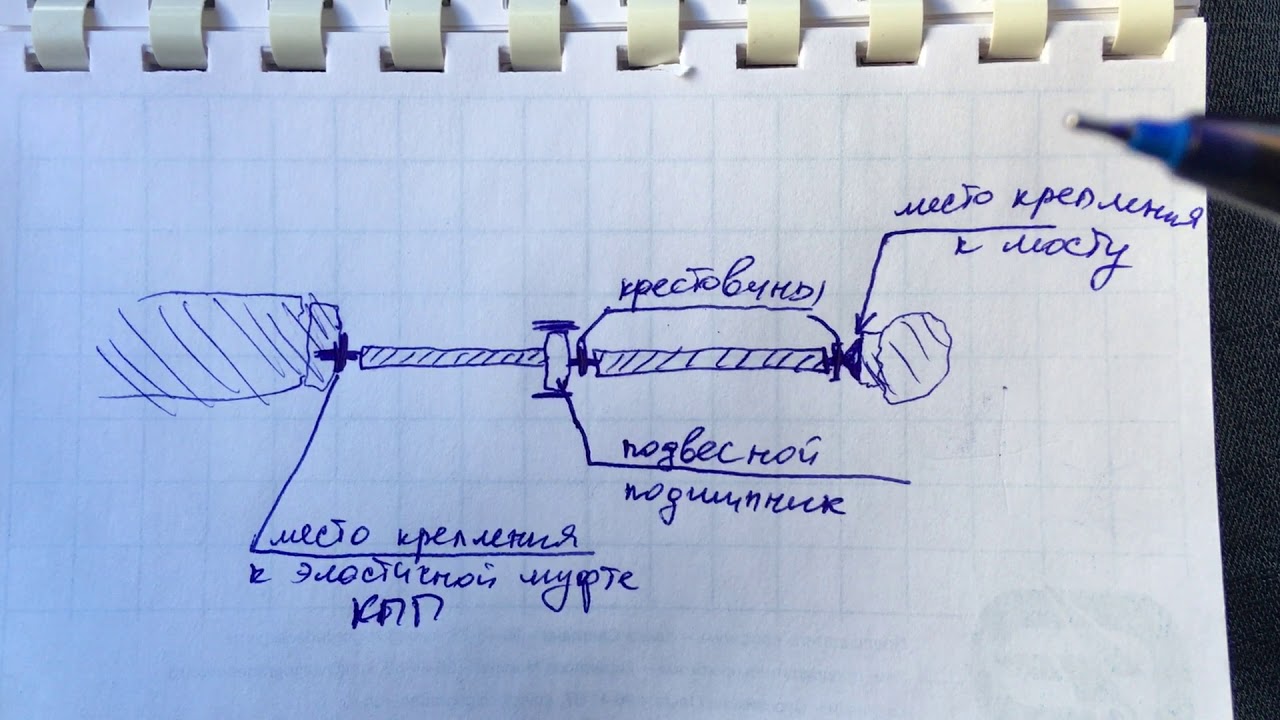 место крепления
к мосту
крестовины
подвесной
подшипник
место крепления
к эластичной муфте
КПП